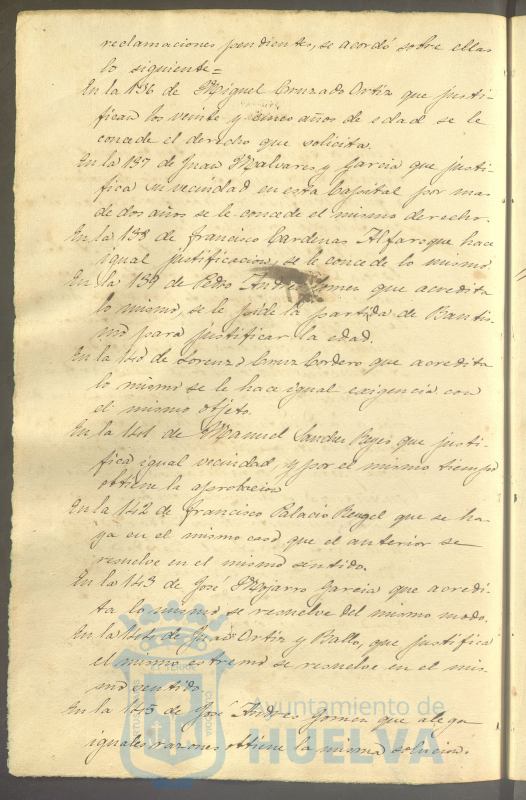 reclamaciones pendientes, se acordó sobre ellas
lo siguiente=
En la 136 de Miguel Cruzado Ortiz que justi-
fican los veinte y cinco años de edad se le
concede el derecho que solicita.
En la 137 de Juan Malvares y Garcia que justi-
fica su vecindad en esta Capital por mas
de dos años se le concede el mismo derecho.
En la 138 de Francisco Cardenas Alfaro que hace
igual justificacion, se le concede lo mismo
En la 139 de Pedro Andres Gomez que acredita
lo mismo, se le pide la partida de Bautis-
mo para justificar la edad.
En la 140 de Lorenzo Cruz Cordero que acredita
lo mismo se le hace igual exigencia con
el mismo objeto.
En la 141 de Manuel Sanchez Reyes que justi-
fica igual vecindad, y por el mismo tiempo
obtiene la aprobacion
En la 142 de Francisco Palacio Rengel que se ha-
ya en el mismo caso que el anterior se
resuelve en el mismo sentido.
En la 143 de José Mojarro Garcia que acredi-
ta lo mismo se resuelve del mismo modo.
En la 144 de Juan Ortiz y Ballo, que justifica
el mismo estremo se resuelve en el mis-
mo sentido
En la 145 de José Andres Gomez que alega
iguales razones obtiene la misma solucion.
Ayuntamiento de
HUELVA